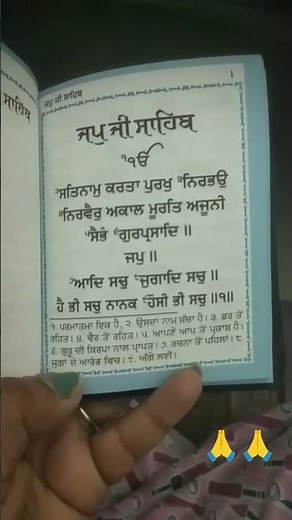 ਸਾਹਿਬ
ਜਪੁ ਜੀ ਸਾਹਿਬ
੧
ਜਪੁ ਜੀ ਸਾਹਿਬ
੧ੴ
੨ਸਤਿਨਾਮੁ ਕਰਤਾ ਪੁਰਖੁ ੩ਨਿਰਭਉ
੪ਨਿਰਵੈਰੁ ਅਕਾਲ ਮੂਰਤਿ ਅਜੂਨੀ
੫ਸੈਭੰ ੬ਗੁਰਪ੍ਰਸਾਦਿ ॥
ਜਪੁ ॥
੭ਆਦਿ ਸਚੁ ੮ਜੁਗਾਦਿ ਸਚੁ ॥
ਹੈ ਭੀ ਸਚੁ ਨਾਨਕ ੯ਹੋਸੀ ਭੀ ਸਚੁ ॥੧॥
੧. ਪਰਮਾਤਮਾ ਇਕ ਹੈ, ੨. ਉਸਦਾ ਨਾਮ ਸੱਚਾ ਹੈ। ੩. ਡਰ ਤੋਂ
ਰਹਿਤ। ੪. ਵੈਰ ਤੋਂ ਰਹਿਤ। ੫. ਆਪਣੇ ਆਪ ਤੋਂ ਪ੍ਰਕਾਸ਼ ਹੈ।
੬. ਗੁਰੂ ਦੀ ਕਿਰਪਾ ਨਾਲ ਪ੍ਰਾਪਤ। ੭. ਰਚਨਾ ਤੋਂ ਪਹਿਲਾਂ। ੮.
ਜੁਗਾਂ ਦੇ ਆਰੰਭ ਵਿਚ। ੯. ਅੱਗੇ ਲਈ।